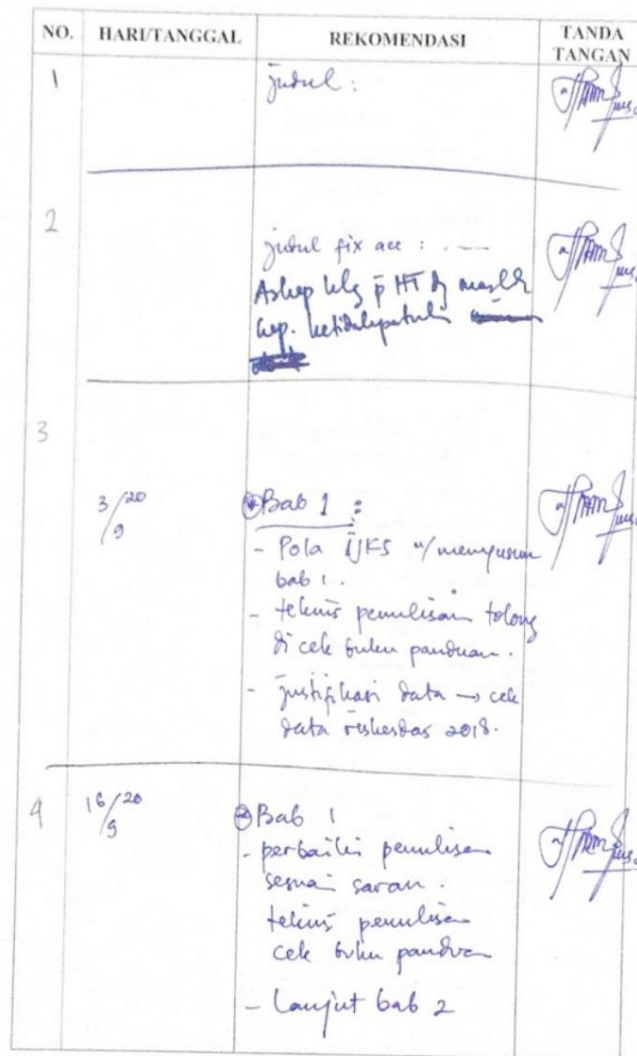 NO. HARI/TANGGAL REKOMENDASI TANDA TANGAN
1 judul :
2
judul fix acc : . —
Askep klg p̄ HT dg
kep. ketidakpatuh
3
3/9 20 Bab 1 :
- Pola IJKS u/ menyusun
bab 1 .
- teknis penulisan tolong
di cek buku panduan .
- justifikasi data → cek
data riskesdas 2018.
4 16/9 20 Bab 1
- perbaiki penulisan
sesuai saran .
teknis penulisan
cek buku panduan
- Lanjut bab 2